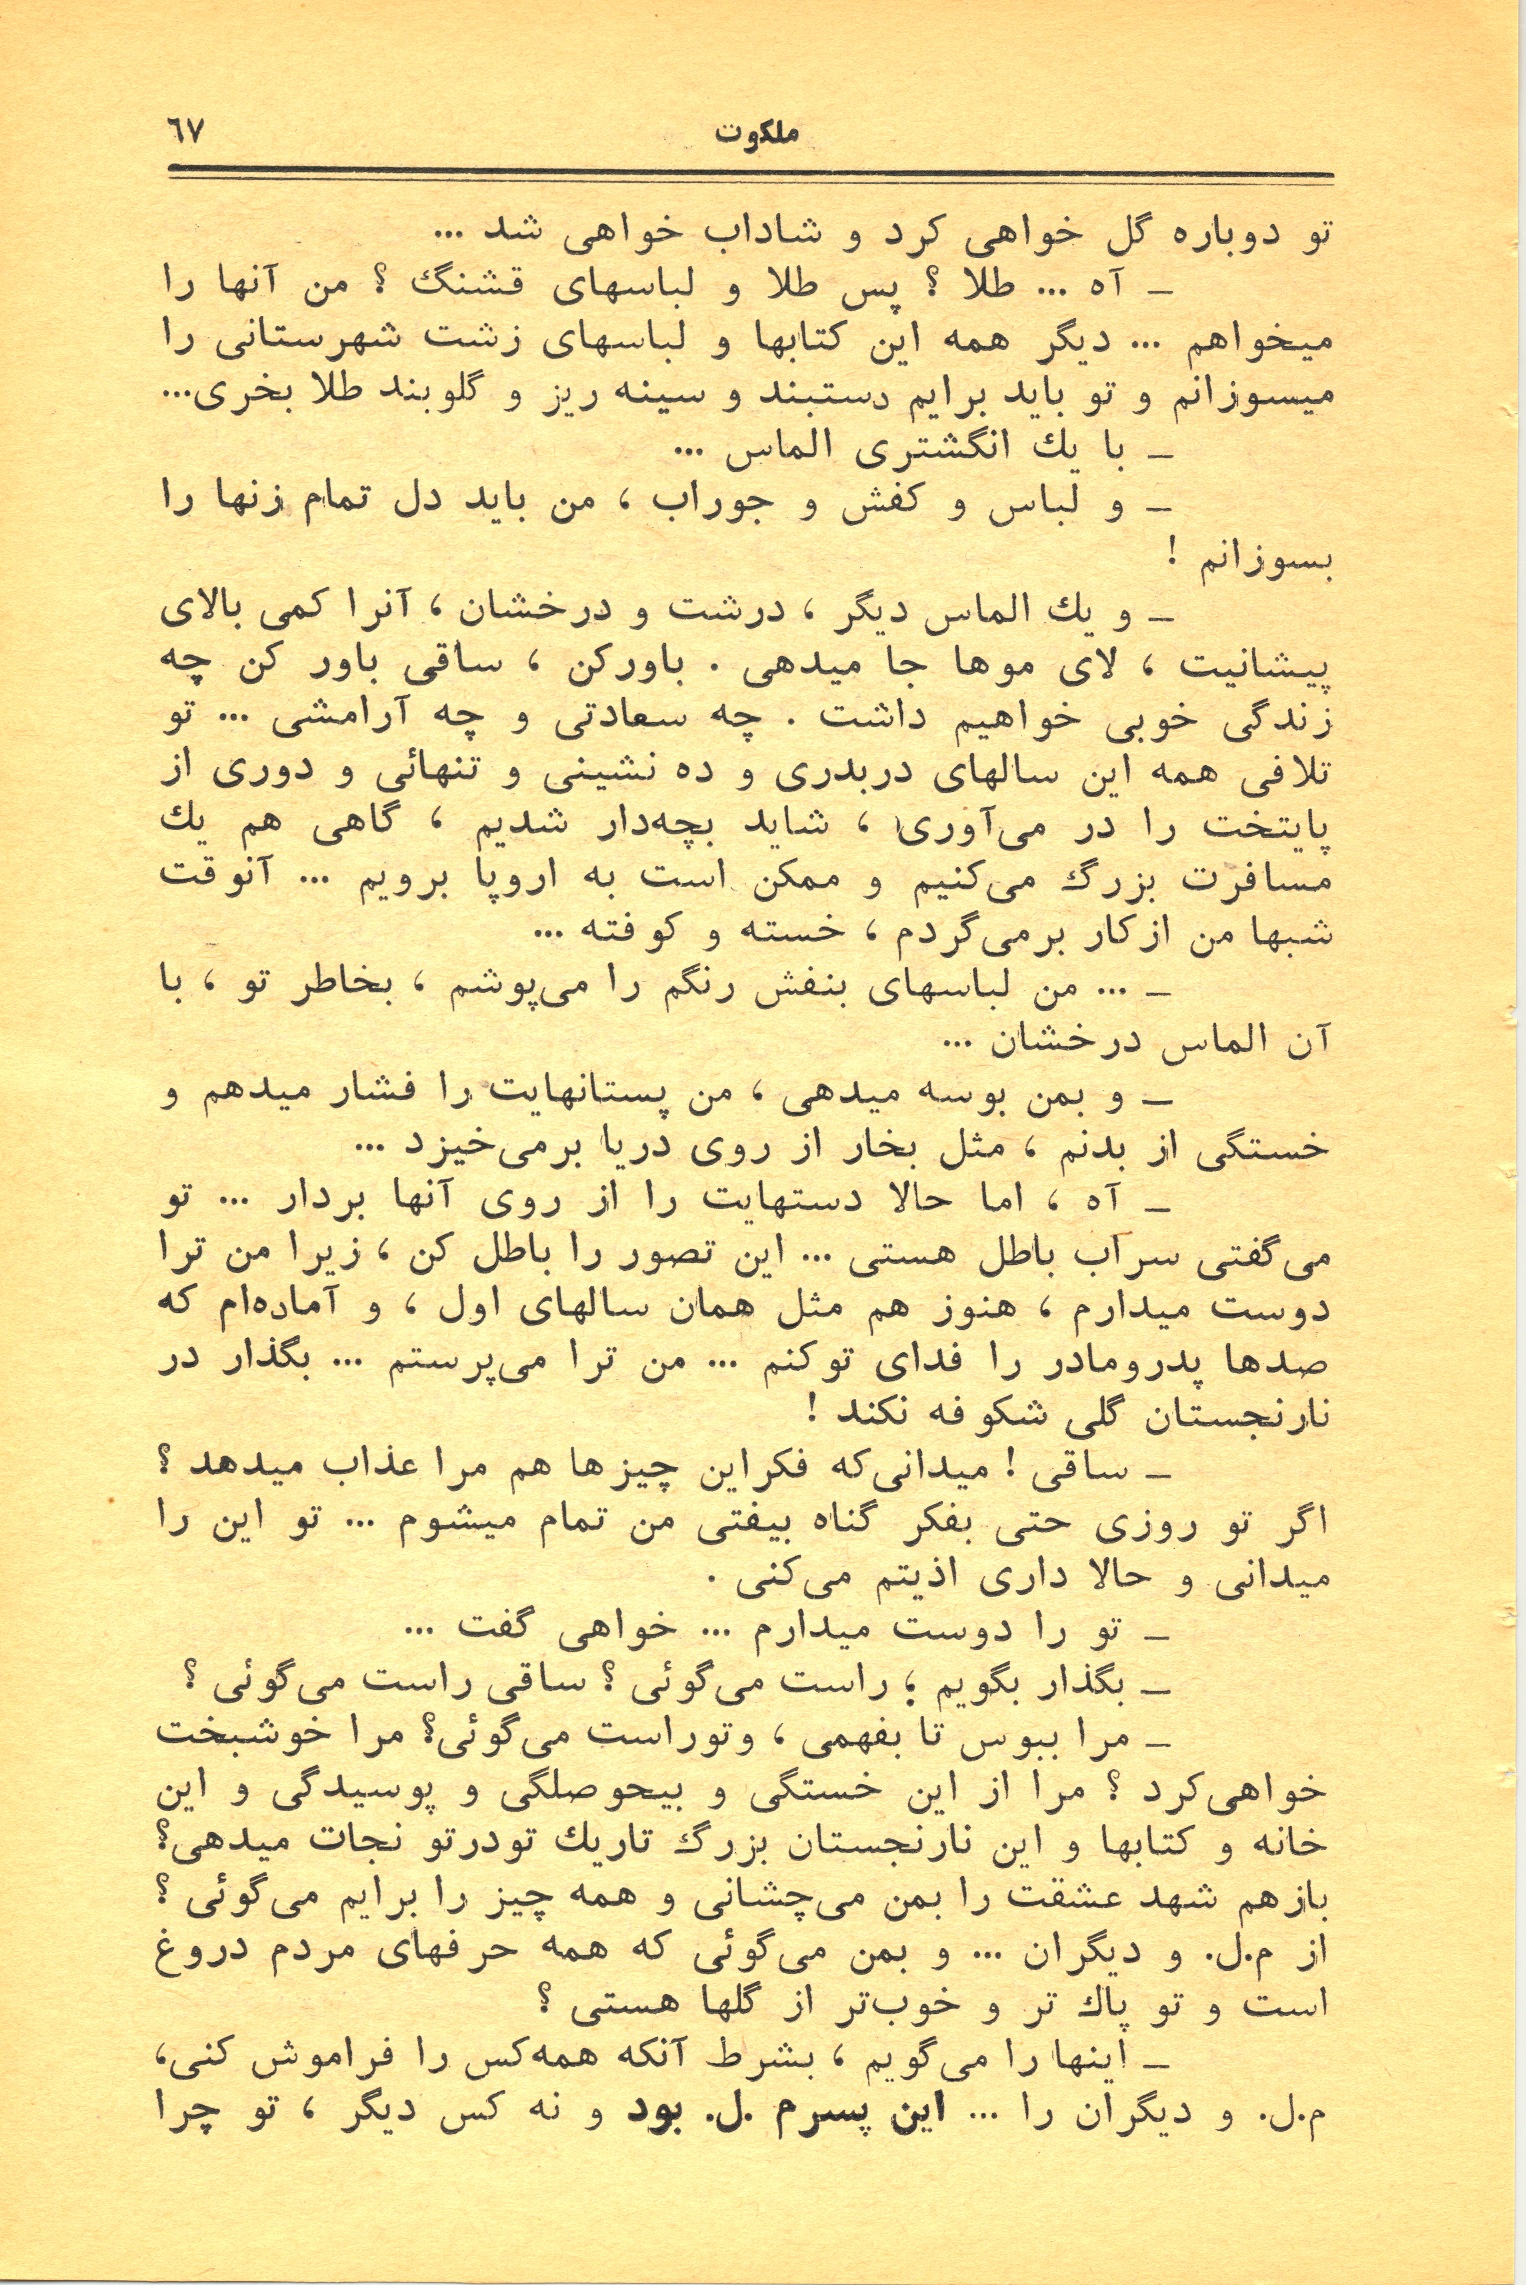 ملکوت ٦٧
تو دوباره گل خواهی کرد و شاداب خواهی شد ...
ـ آه ... طلا ؟ پس طلا و لباسهای قشنگ ؟ من آنها را
میخواهم ... دیگر همه این کتابها و لباسهای زشت شهرستانی را
میسوزانم و تو باید برایم دستبند و سینه ریز و گلوبند طلا بخری...
ـ با یك انگشتری الماس ...
ـ و لباس و کفش و جوراب ، من باید دل تمام زنها را
بسوزانم !
ـ و یك الماس دیگر ، درشت و درخشان ، آنرا کمی بالای
پیشانیت ، لای موها جا میدهی . باورکن ، ساقی باور کن چه
زندگی خوبی خواهیم داشت . چه سعادتی و چه آرامشی ... تو
تلافی همه این سالهای دربدری و ده نشینی و تنهائی و دوری از
پایتخت را در می‌آوری ، شاید بچه‌دار شدیم ، گاهی هم یك
مسافرت بزرگ می‌کنیم و ممکن است به اروپا برویم ... آنوقت
شبها من ازکار برمی‌گردم ، خسته و کوفته ...
ـ ... من لباسهای بنفش رنگم را می‌پوشم ، بخاطر تو ، با
آن الماس درخشان ...
ـ و بمن بوسه میدهی ، من پستانهایت را فشار میدهم و
خستگی از بدنم ، مثل بخار از روی دریا برمی‌خیزد ...
ـ آه ، اما حالا دستهایت را از روی آنها بردار ... تو
می‌گفتی سراب باطل هستی ... این تصور را باطل کن ، زیرا من ترا
دوست میدارم ، هنوز هم مثل همان سالهای اول ، و آماده‌ام که
صدها پدرومادر را فدای توکنم ... من ترا می‌پرستم ... بگذار در
نارنجستان گلی شکوفه نکند !
ـ ساقی ! میدانی‌که فکراین چیزها هم مرا عذاب میدهد ؟
اگر تو روزی حتی بفکر گناه بیفتی من تمام میشوم ... تو این را
میدانی و حالا داری اذیتم می‌کنی .
ـ تو را دوست میدارم ... خواهی گفت ...
ـ بگذار بگویم ؛ راست می‌گوئی ؟ ساقی راست می‌گوئی ؟
ـ مرا ببوس تا بفهمی ، وتوراست می‌گوئی؟ مرا خوشبخت
خواهی‌کرد ؟ مرا از این خستگی و بیحوصلگی و پوسیدگی و این
خانه و کتابها و این نارنجستان بزرگ تاریك تودرتو نجات میدهی؟
بازهم شهد عشقت را بمن می‌چشانی و همه چیز را برایم می‌گوئی ؟
از م.ل. و دیگران ... و بمن می‌گوئی که همه حرفهای مردم دروغ
است و تو پاك تر و خوب‌تر از گلها هستی ؟
ـ اینها را می‌گویم ، بشرط آنکه همه‌کس را فراموش کنی،
م.ل. و دیگران را ... این پسرم .ل. بود و نه کس دیگر ، تو چرا